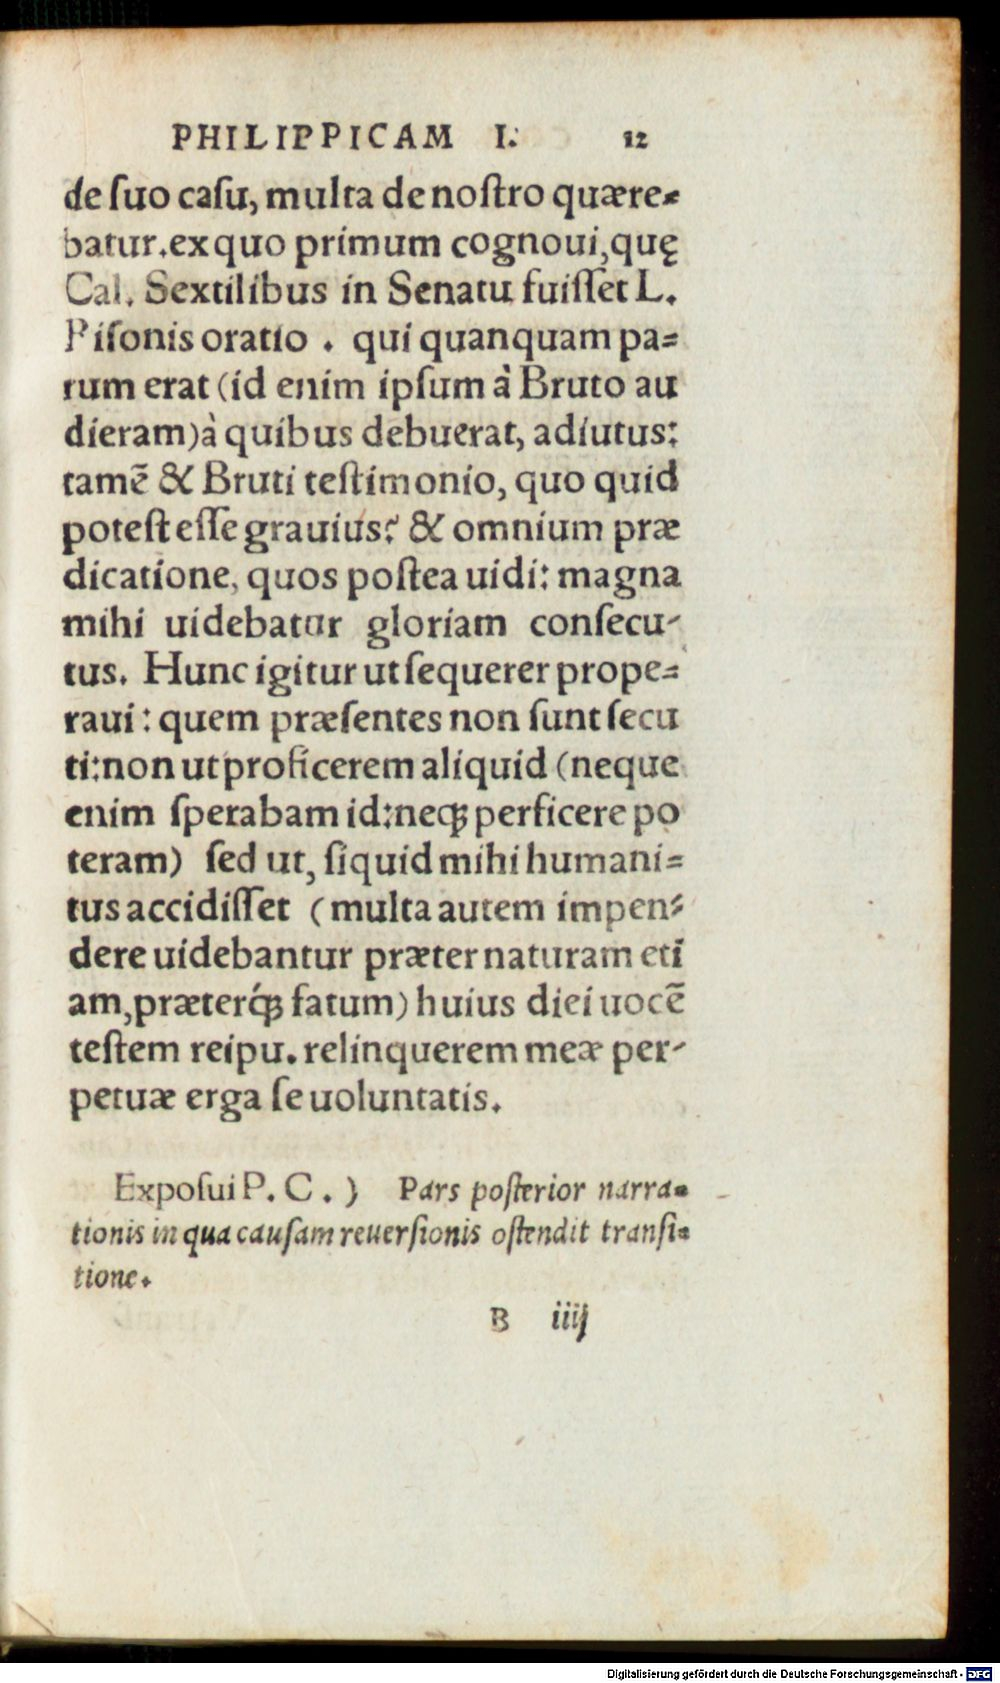 PHILIPPICAM I. 12
de ſuo caſu, multa de noſtro quære-
batur. ex quo primum cognoui, quę
Cal. Sextilibus in Senatu fuiſſet L.
Piſonis oratio . qui quanquam pa-
rum erat (id enim ipſum à Bruto au
dieram) à quibus debuerat, adiutus:
tamẽ & Bruti teſtimonio, quo quid
poteſt eſſe grauius? & omnium præ
dicatione, quos poſtea uidi: magna
mihi uidebatur gloriam conſecu-
tus. Hunc igitur ut ſequerer prope-
raui: quem præſentes non ſunt ſecu
ti: non ut proficerem aliquid (neque
enim ſperabam id: neqꝫ perficere po
teram) ſed ut, ſiquid mihi humani-
tus accidiſſet (multa autem impen-
dere uidebantur præter naturam eti
am, præterq́ꝫ fatum) huius diei uocẽ
teſtem reipu. relinquerem meæ per-
petuæ erga ſe uoluntatis.
Expoſui P. C. ) Pars poſterior narra-
tionis in qua cauſam reuerſionis oſtendit tranſi-
tione.
B iiij
Digitalisierung gefördert durch die Deutsche Forschungsgemeinschaft - DFG